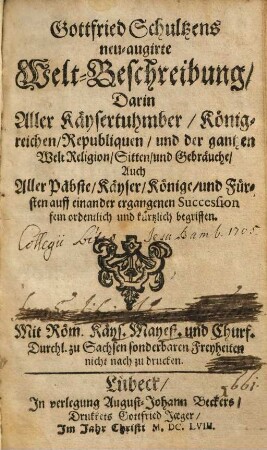 Gottfried Schultzens
neu-augirte
Welt-Beschreibung/
Darin
Aller Käysertuhmber / König-
reichen/Republiquen/ und der gantzen
Welt Religion/Sitten/und Gebräuche/
Auch
Aller Päbste/Käyser/Könige/und Für-
sten auff einander ergangenen Succession
fein ordentlich und kürtzlich begriffen.
Collegii 1705
Mit Röm. Käys. Mayest. und Churf.
Durchl. zu Sachsen sonderbaren Freyheiten
nicht nach zu drucken.
Lübeck/
In verlegung August-Johann Beckers/
Druckts Gottfried Jæger/
Im Jahr Christi M. DC. LVIII.